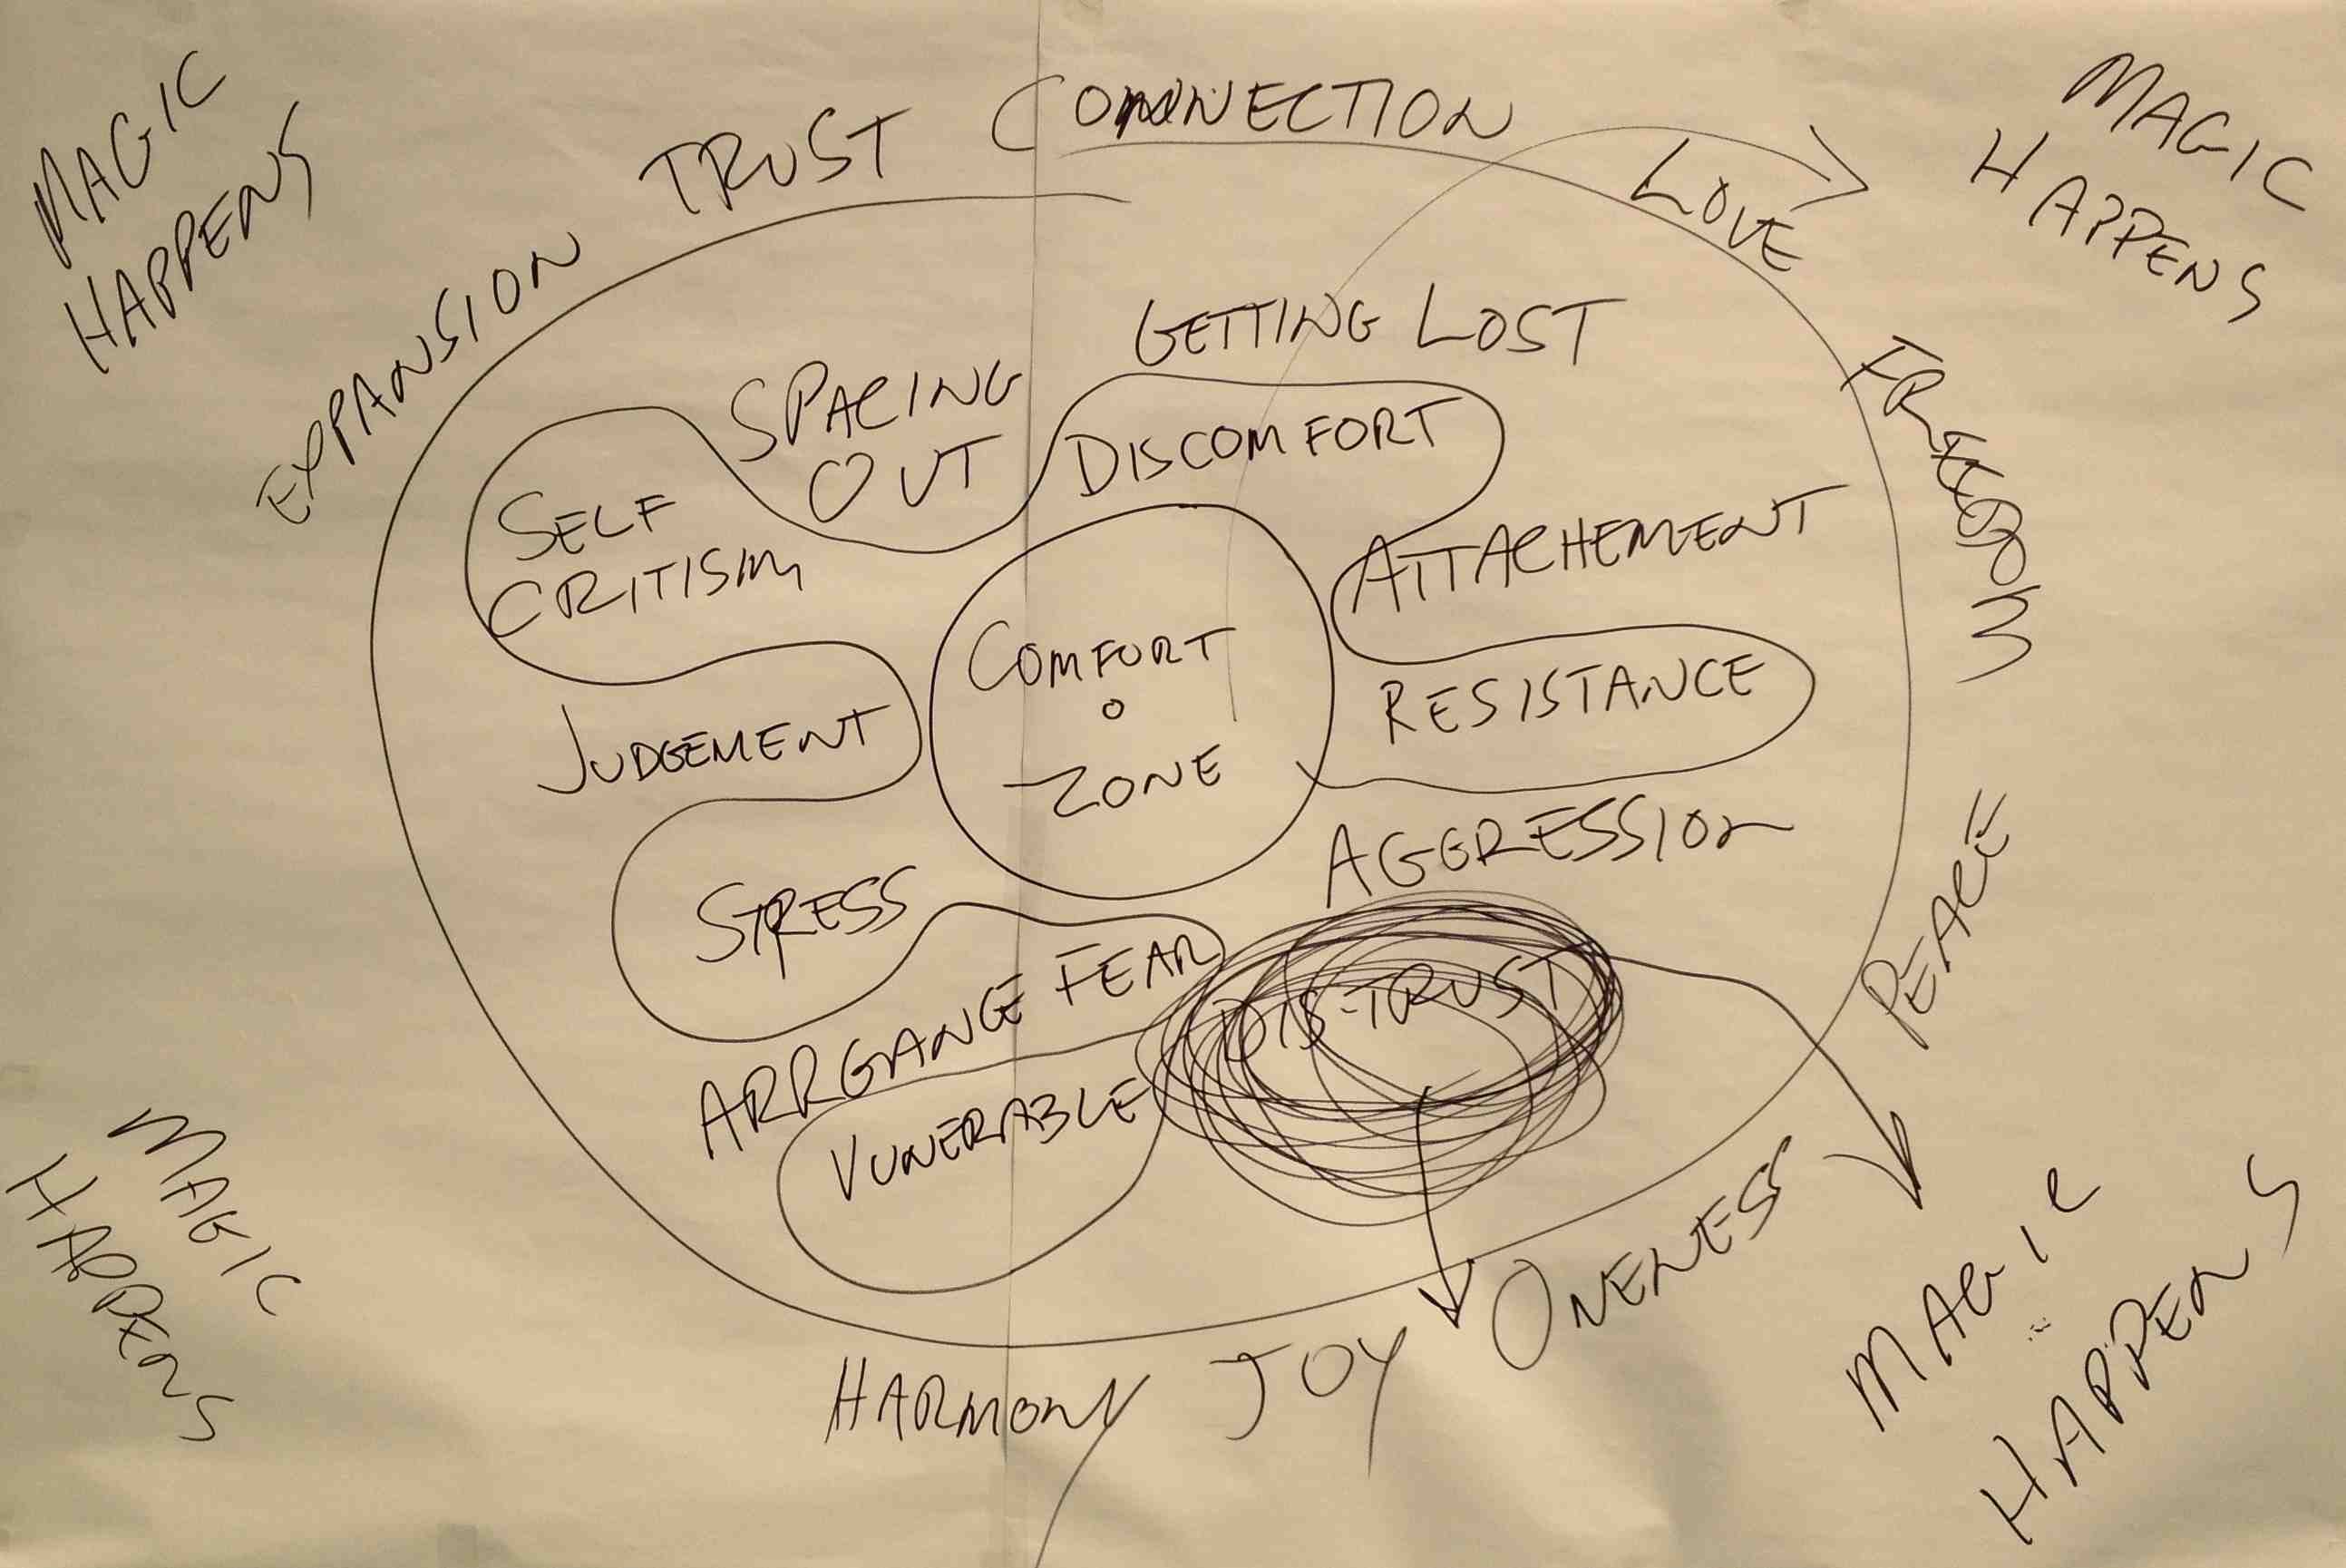 MAGIC
HAPPENS
EXPANSION
TRUST
CONNECTION
LOVE
MAGIC
HAPPENS
FREEDOM
PEACE
ONENESS
JOY
HARMONY
GETTING LOST
SPACING
OUT
DISCOMFORT
SELF
CRITISIM
ATTACHEMENT
COMFORT
ZONE
RESISTANCE
JUDGEMENT
AGGRESSION
STRESS
FEAR
DIS-TRUST
ARRGANCE
VUNERABLE
MAGIC
HAPPENS
MAGIC
HAPPENS